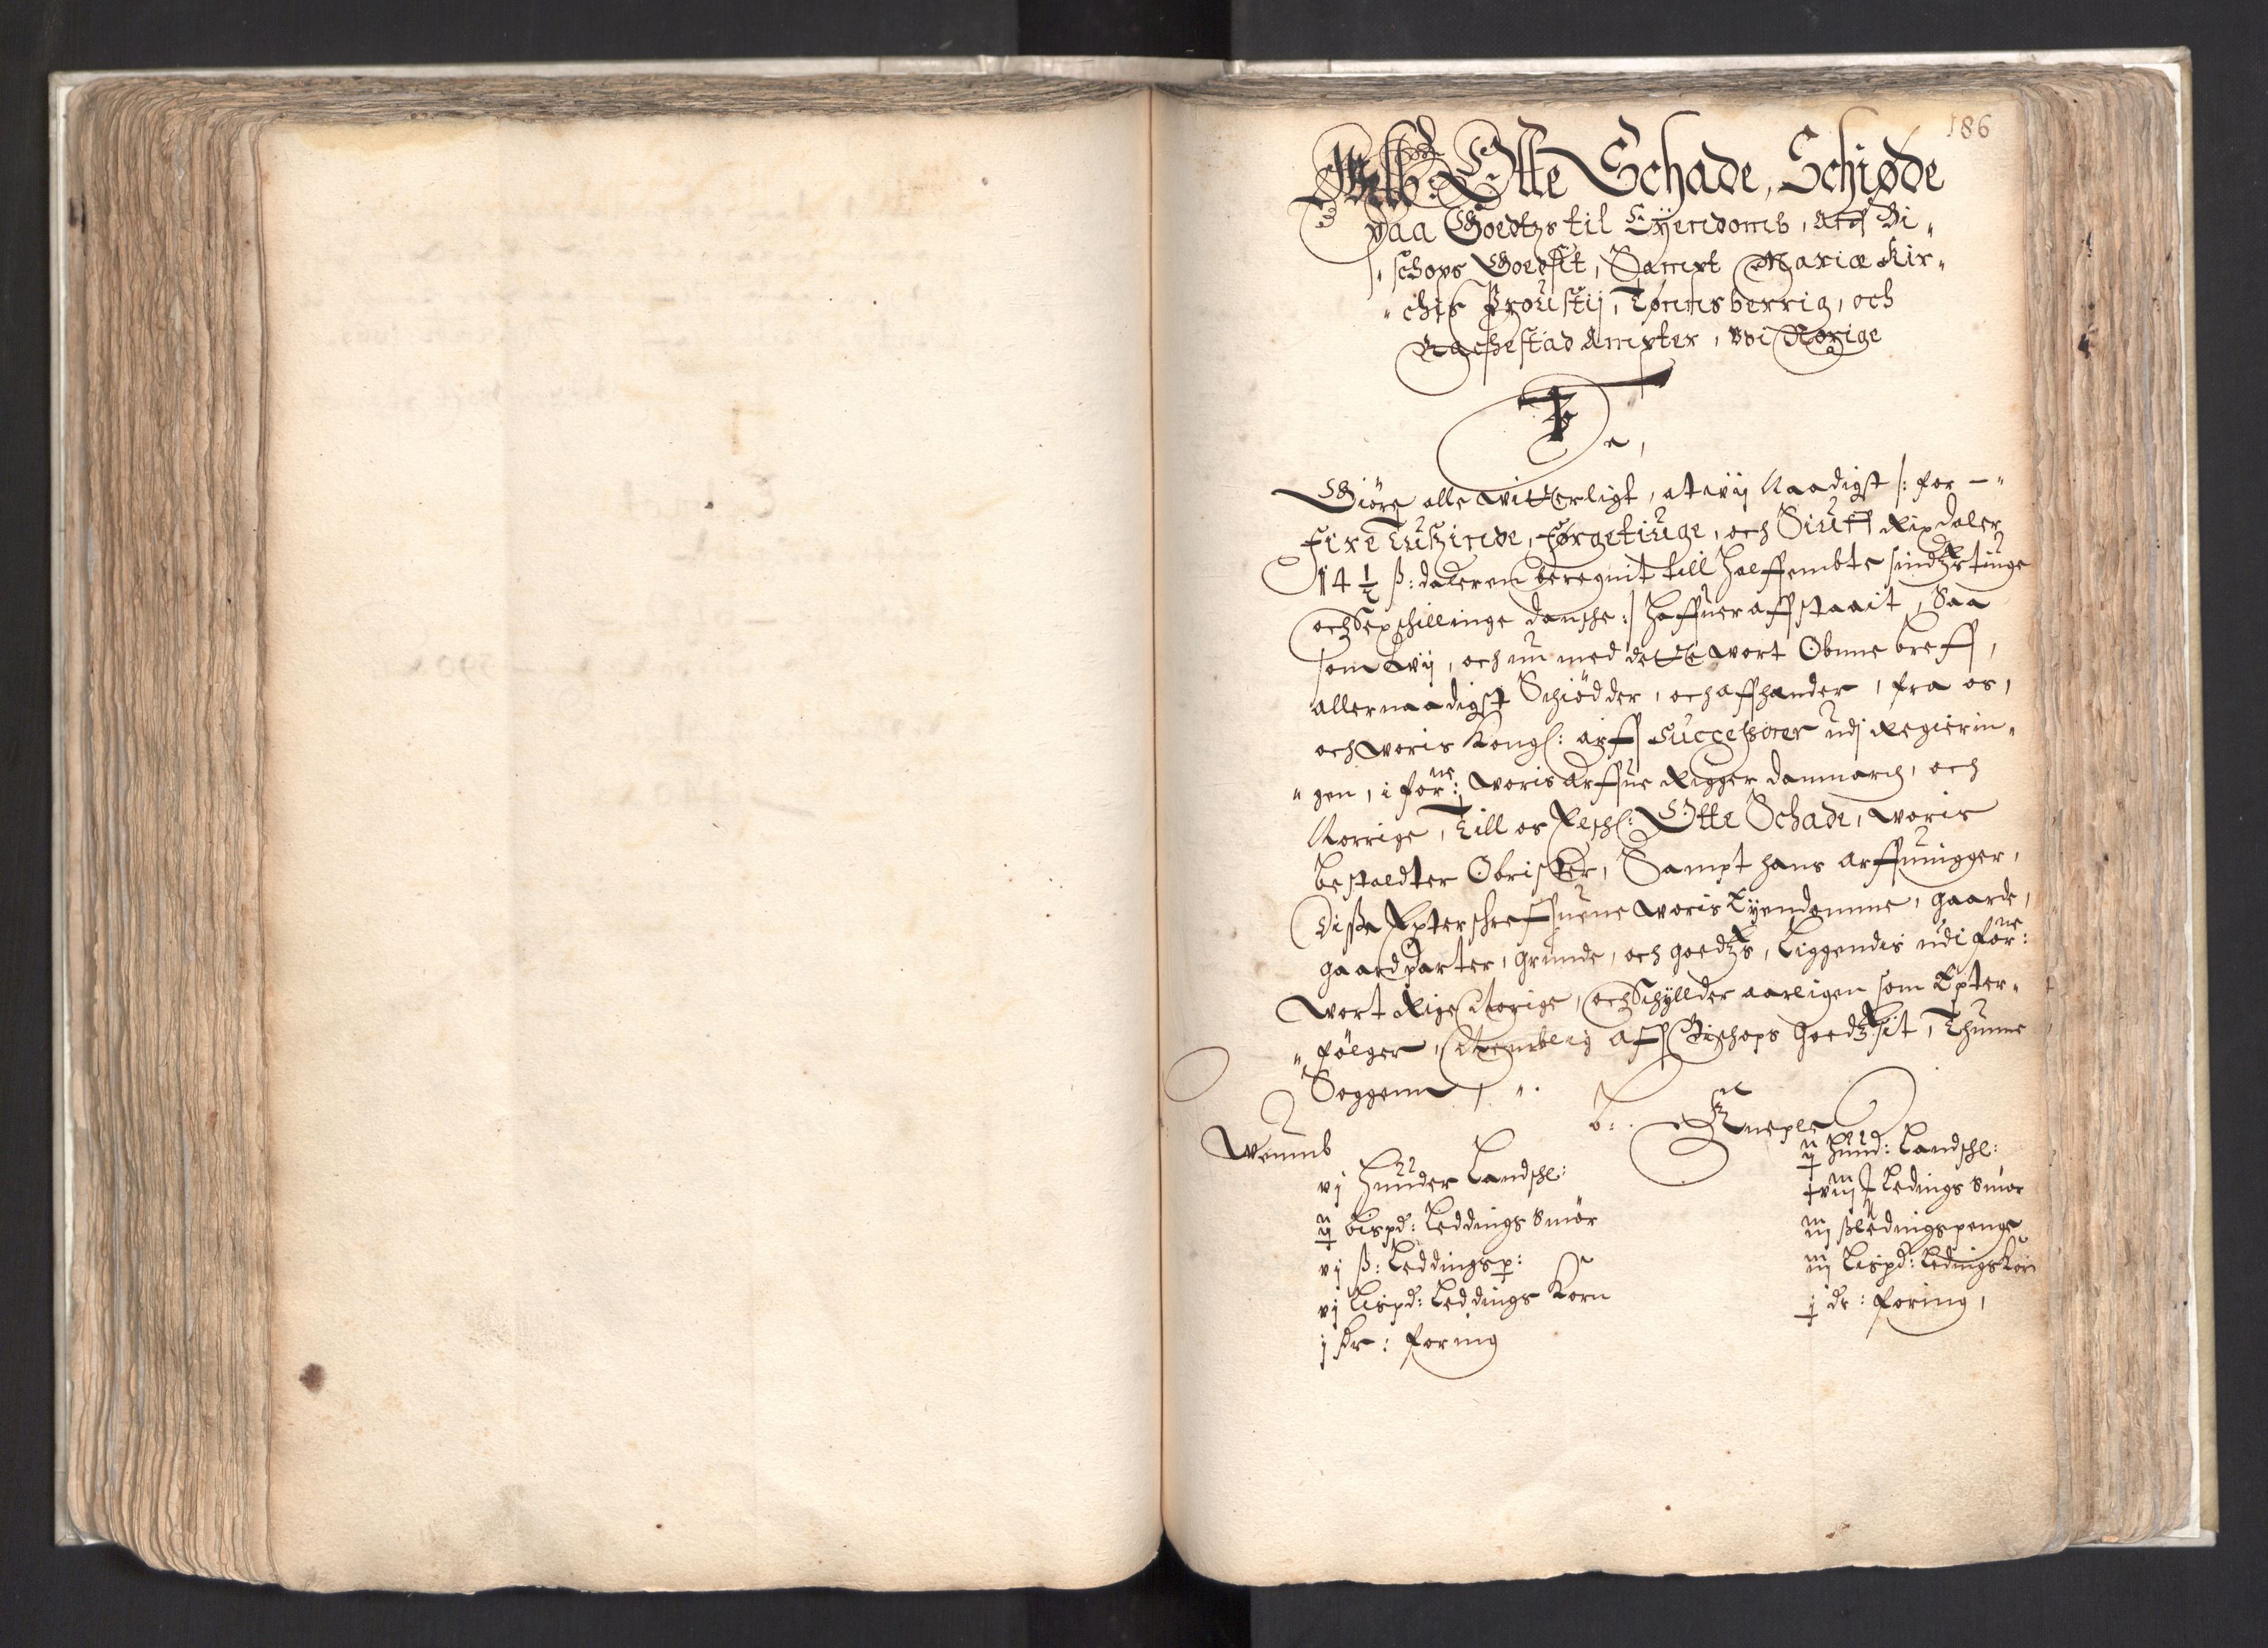 186
Otte Schade, Schiøde
paa Goedtzs til Eyendomb, aff Bi„
„schops Goedsit, Sampt Mariæ Kir„
„chis Proustij, Tønnsberrig, och
Aggeshestad Ampter, vdi Norige
Giöre alle witterligt, at wij Naadigst /: for —„
fire Tußinde, førgetiuge, och Siuff Rixdaler
14 ½ ß: daleren beregnit till halffembte sindztiuge
och Sex schillinge dansche :/ haffuer affstaait, Saa
som Wij, och nu med dette wort Obne breff,
allernaadigst Schiödder, och affhænder, fra os,
och woris Kongl: arff Successorer udj Regierin„
„gen, i forne: woris arffue Rigger Danmarch, och
Norrige, Till os Elschl: Otte Schade, woris
bestaldter Obrister, Sampt hans arffuingger,
Disse Epterschreffuene woris Eyendomme, gaarde,
gaardparter, grunde, och goedtzs, liggendis udi forne:
wort Rige Norige, och Schyllder aarligen som Epter„
„fölger, Nemblig aff Bischops goedtzsit, Thunne
Soggenn, „.
Wemmb
vj Hunder Landschl:
ij bispd: Leddings Smör
vj ß: Leddingsp:
vj Lispd: Leddings Korn
j dr: foring
ö: Kneple
ij hund: Landschl:
Ledings Smör
iij ß ledingspenge
iij Lispd: Ledings Korn
j dr: foring,